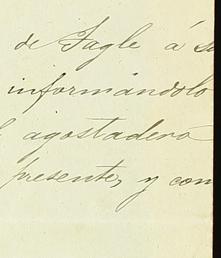 de Tagle á su
informándolo
agostadero
presente, y con